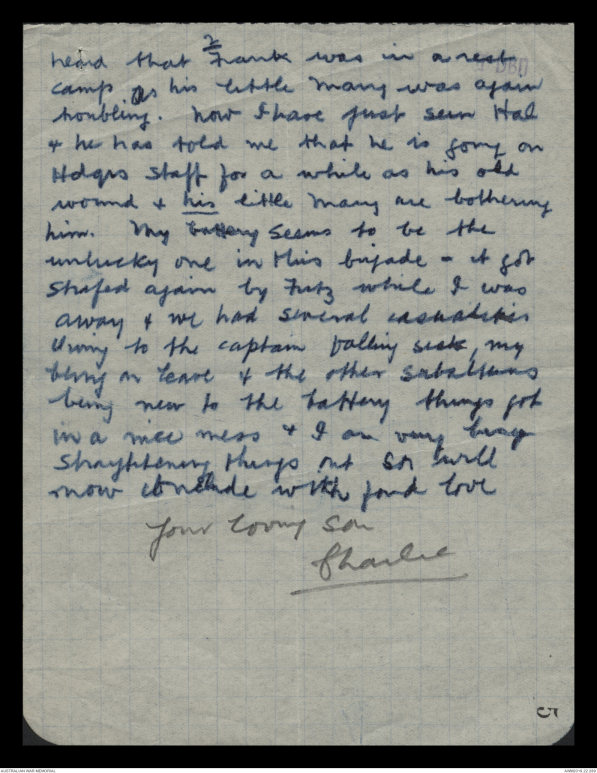 2
heard that Frank was in a rest
camp as his little Mary was again
troubling. Now I have just seen Hal
& he has told me that he is going on
Hdqrs Staff for a while as his old
wound & his little Mary are bothering
him. My battery seems to be the
unlucky one in this brigade - it got
strafed again by Fritz while I was
away & we had several casualties
Owing to the captain falling sick, my
being on leave & the other subalterns
being new to the battery things got
in a nice mess & I am very busy
straightening things out so will
now conclude with fond love
Your loving son
Charlie
5
AUSTRALIAN WAR MEMORIAL